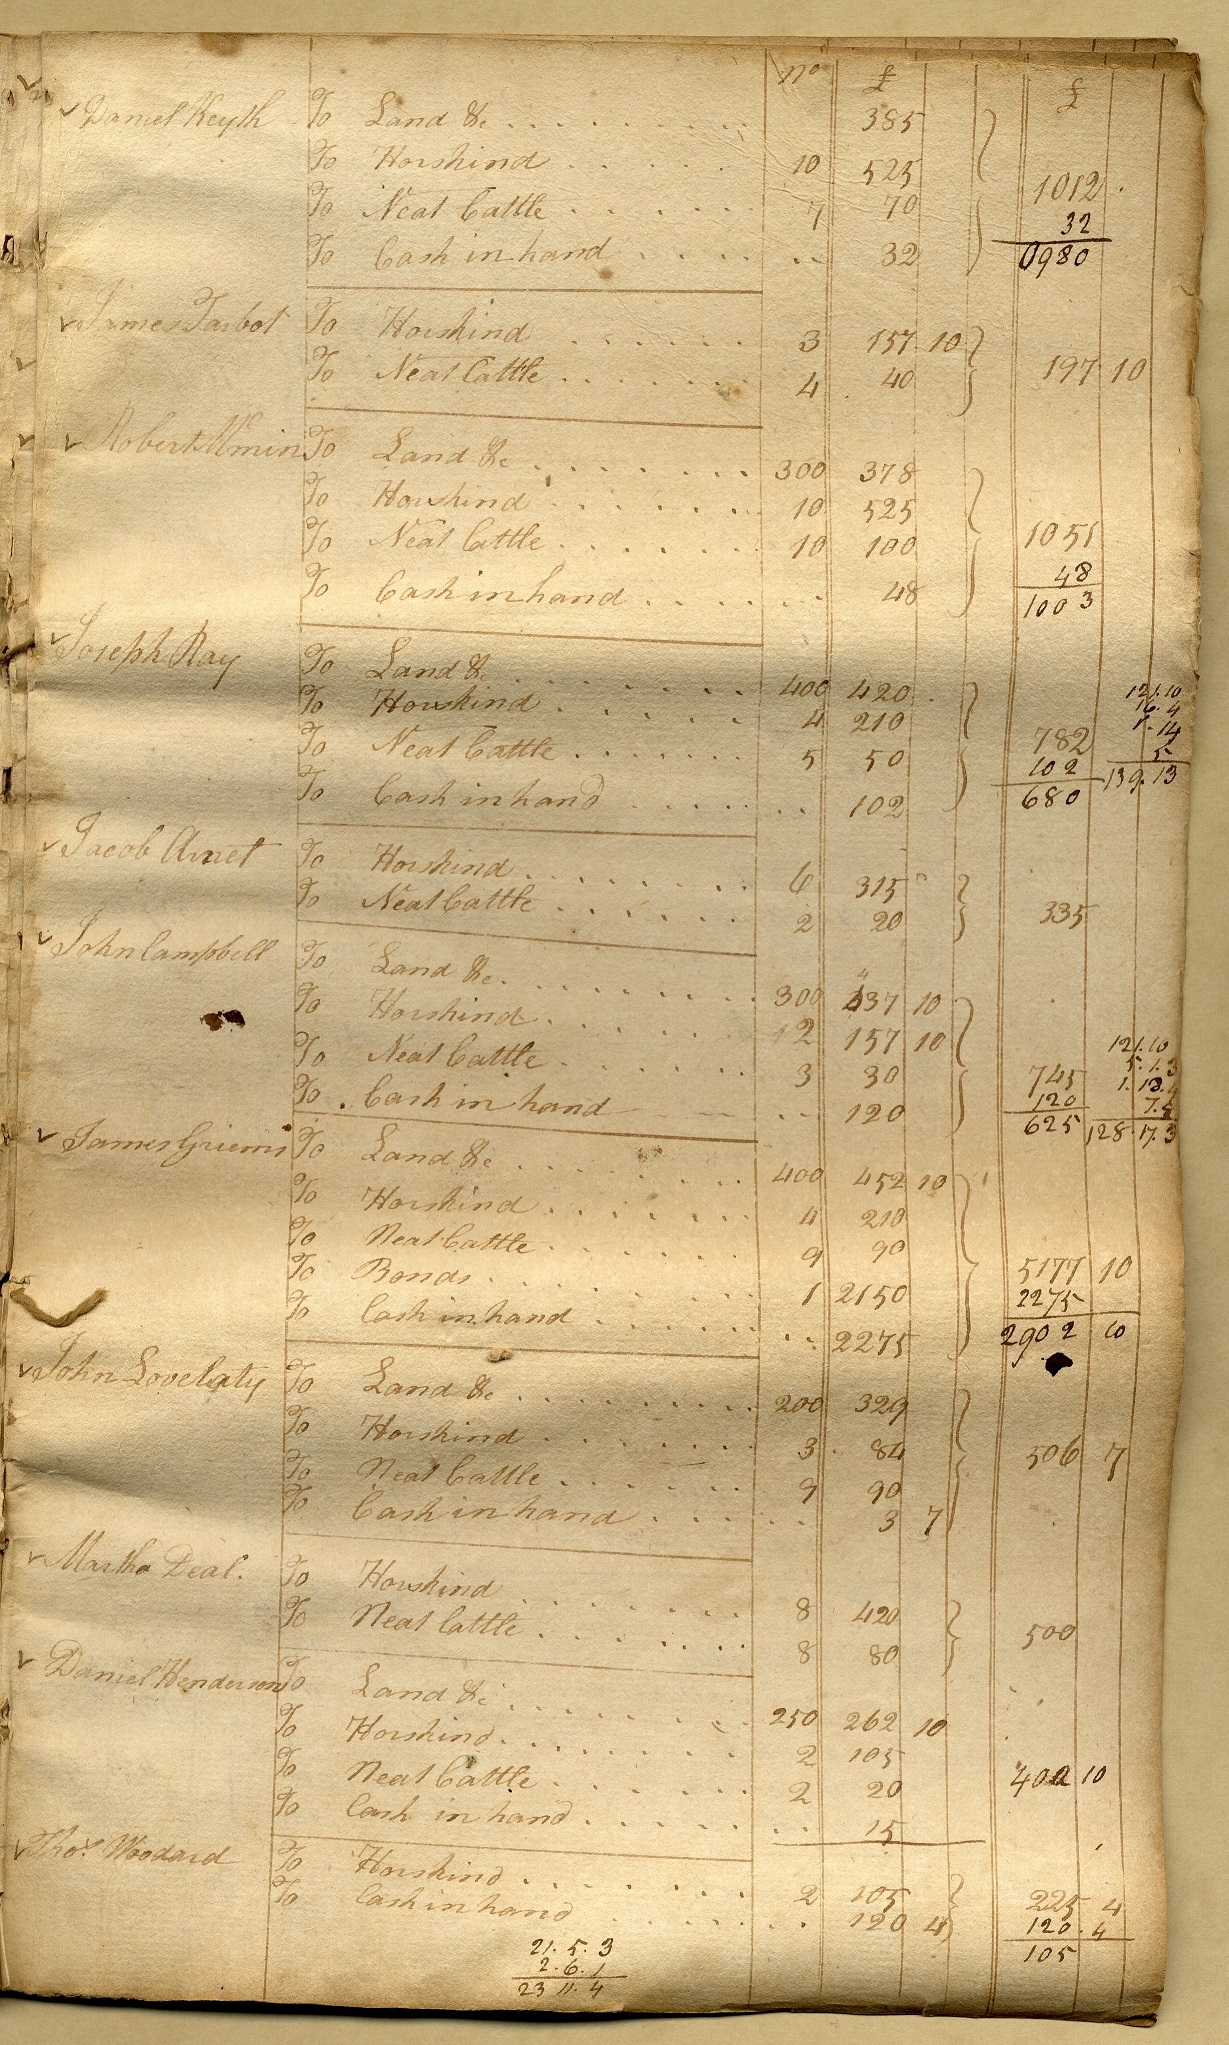 no £ £
Daniel Keyth To Land &c 385
To Horskind 10 525
To Neat Cattle 7 70 1012
To Cash in hand 32
32
0980
James Tarbot To Horskind 3 157 10
To Neat Cattle 4 40 197 10
Robert To Land &c 300 378
To Horskind 10 525
To Neat Cattle 10 100 1051
To Cash in hand 48
48
1003
Joseph Ray To Land &c 400 420
To Horskind 4 210
To Neat Cattle 5 50 782
To Cash in hand 102
102
680
121.10
16.4
1.14
5
139.13
Jacob Arnet To Horskind 6 315
To Neat Cattle 2 20 335
John Campbell To Land &c 300 437 10
To Horskind 2 157 10
To Neat Cattle 3 30 745
To Cash in hand 120
120
625
121.10
5.1.3
1.13.4
128.17.3
James To Land &c 400 452 10
To Horskind 4 210
To Neat Cattle 9 90
To Bonds 1 2150 5177 10
To Cash in hand 2275
2275
2902 10
John Lovelaty To Land &c 200 329
To Horskind 3 84 506 7
To Neat Cattle 9 90
To Cash in hand 3 7
Martha Deal. To Horskind 8 420
To Neat Cattle 8 80 500
Daniel Henderson To Land &c 250 262 10
To Horskind 2 105
To Neat Cattle 2 20 402 10
To Cash in hand 15
Thos. Woodard To Horskind 2 105
To Cash in hand 120 4 225 4
120.4
105
21.5.3
2.6.1
23 11.4